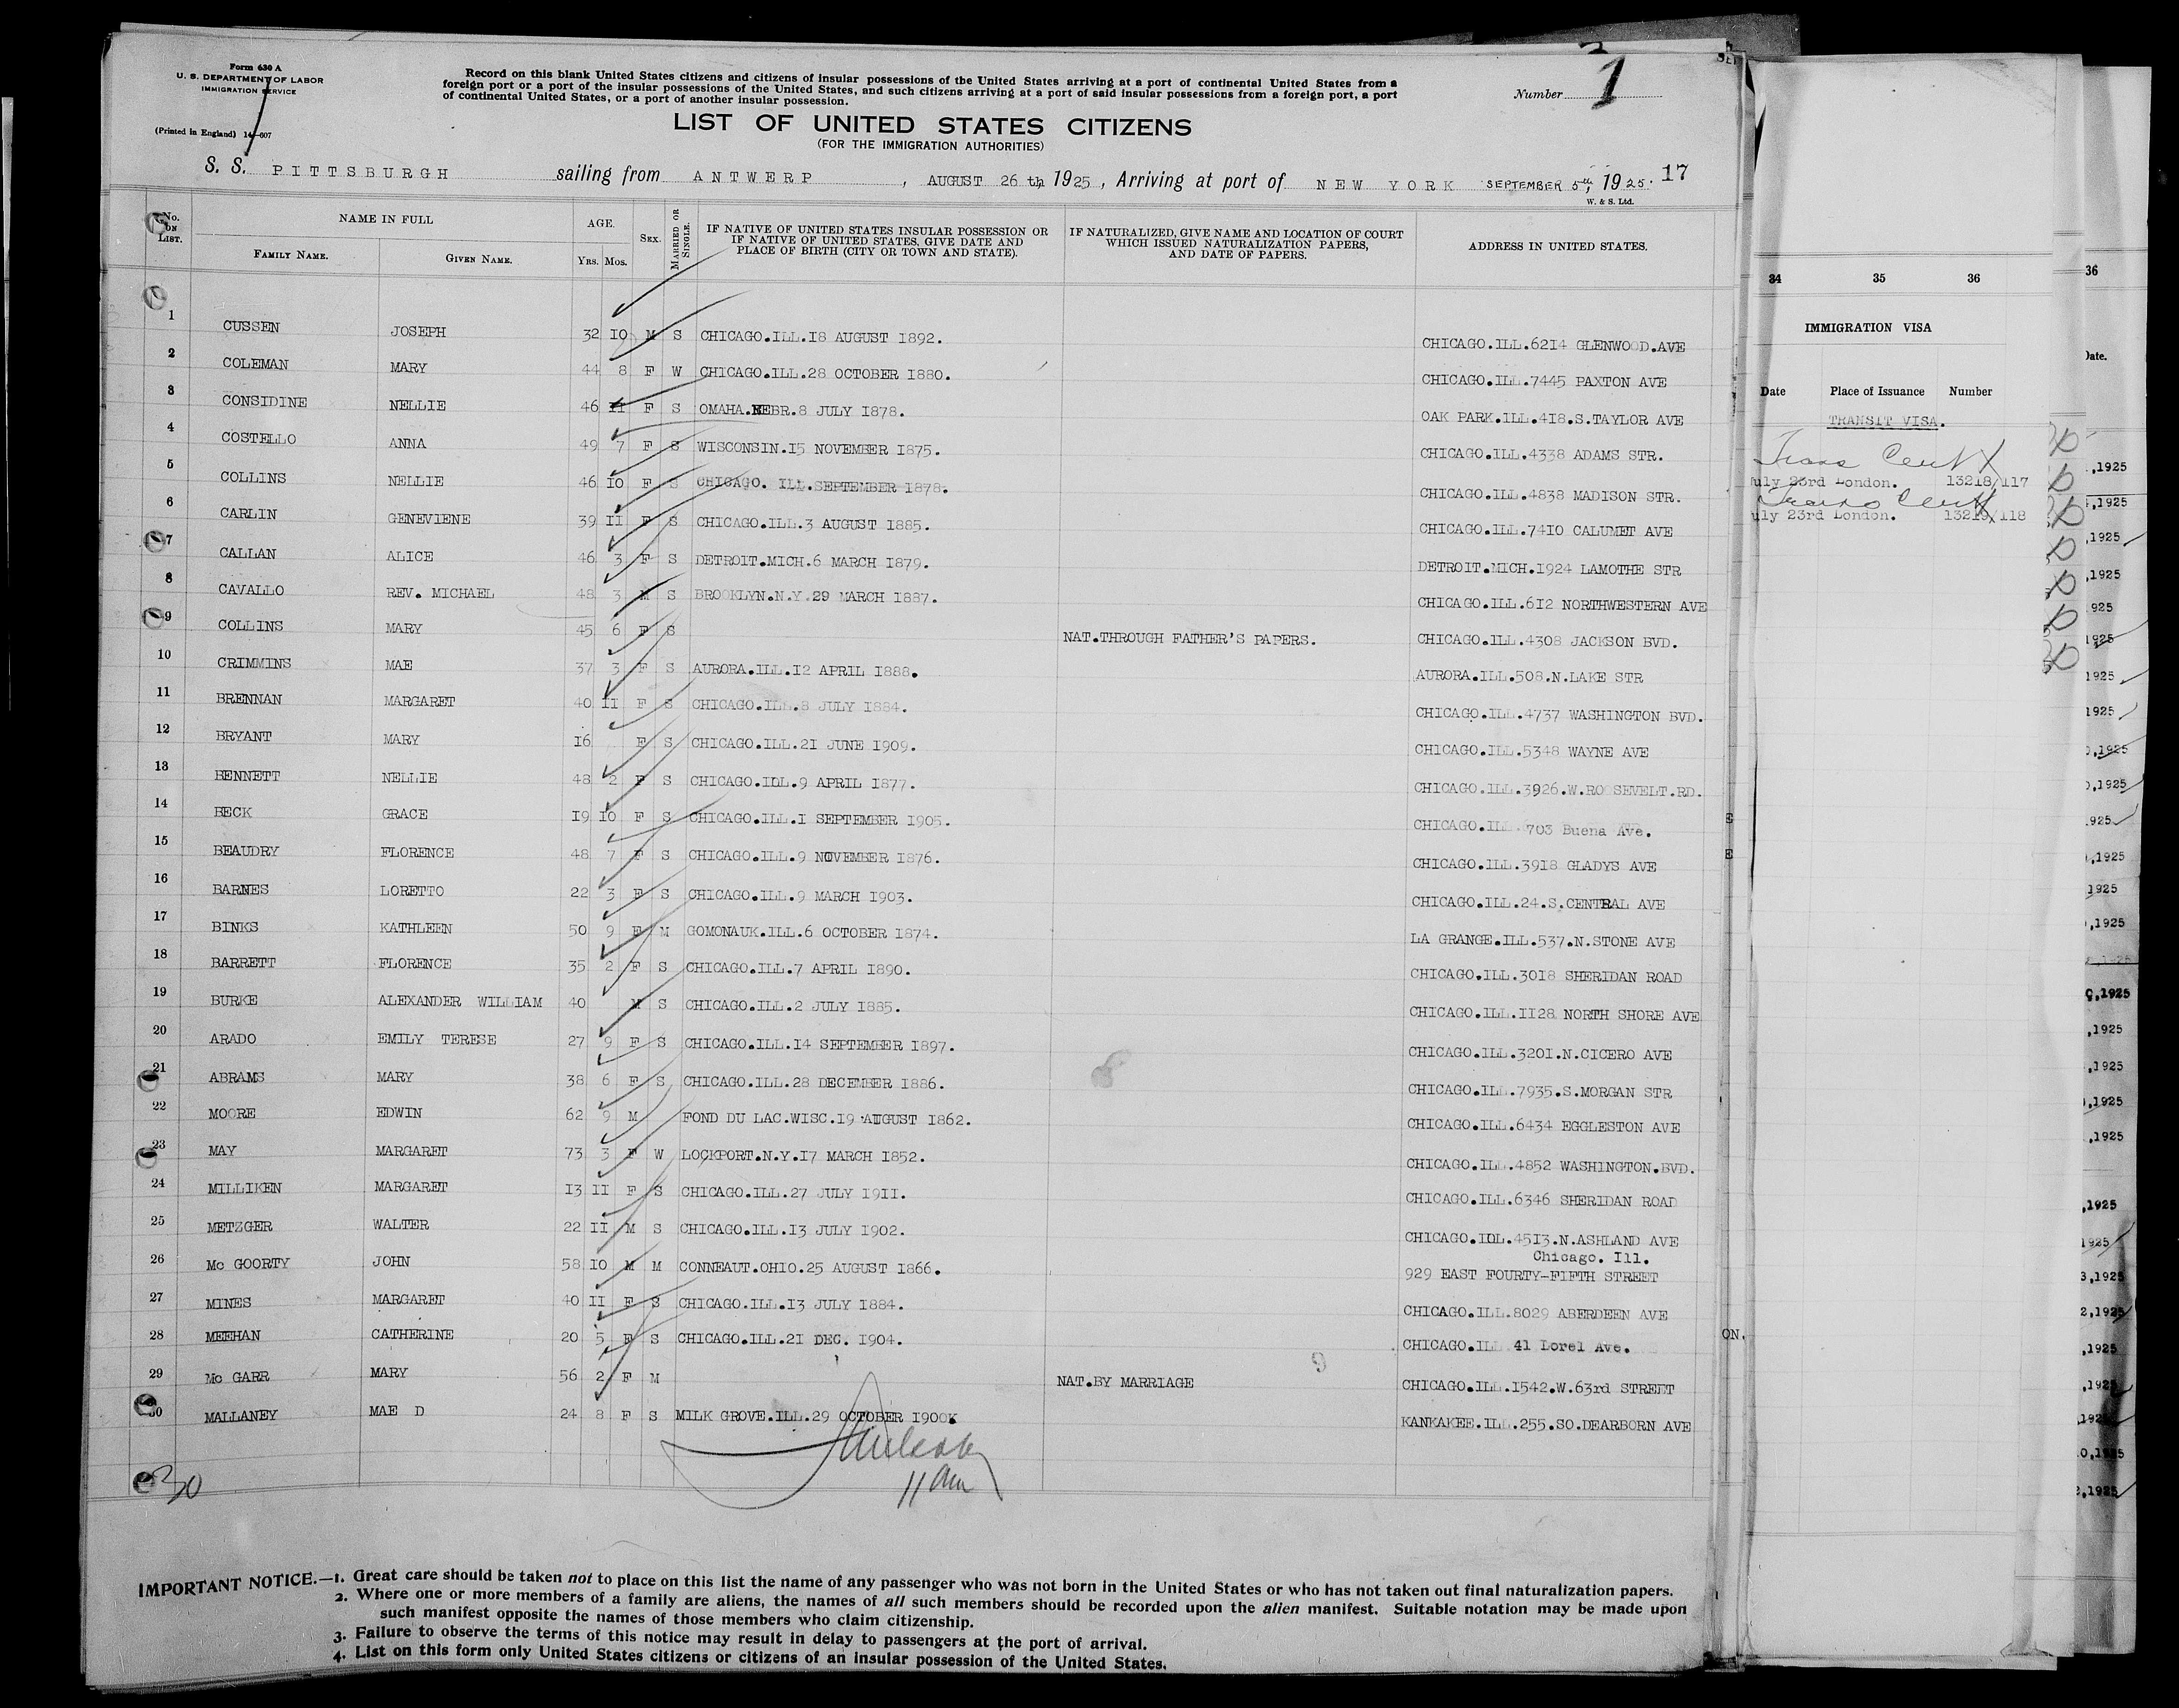 Form 630 A
U. S. DEPARTMENT OF LABOR
IMMIGRATION SERVICE
(Printed in England) 14—607
Record on this blank United States citizens and citizens of insular possessions of the United States arriving at a port of continental United States from a
foreign port or a port of the insular possessions of the United States, and such citizens arriving at a port of said insular possessions from a foreign port, a port
of continental United States, or a port of another insular possession.
Number 1
LIST OF UNITED STATES CITIZENS
(FOR THE IMMIGRATION AUTHORITIES)
S. S. PITTSBURGH sailing from ANTWERP, AUGUST 26 th 1925, Arriving at port of NEW YORK SEPTEMBER 5th, 1925. 17
W. & S. Ltd.
No. ON LIST. NAME IN FULL AGE. SEX. MARRIED OR SINGLE. IF NATIVE OF UNITED STATES INSULAR POSSESSION OR IF NATIVE OF UNITED STATES, GIVE DATE AND PLACE OF BIRTH (CITY OR TOWN AND STATE). IF NATURALIZED, GIVE NAME AND LOCATION OF COURT WHICH ISSUED NATURALIZATION PAPERS, AND DATE OF PAPERS. ADDRESS IN UNITED STATES.
FAMILY NAME. GIVEN NAME. YRS. MOS.
1 CUSSEN JOSEPH 32 10 M S CHICAGO.ILL.18 AUGUST 1892. CHICAGO.ILL.6214 GLENWOOD.AVE
2 COLEMAN MARY 44 8 F W CHICAGO.ILL.28 OCTOBER 1880. CHICAGO.ILL.7445 PAXTON AVE
3 CONSIDINE NELLIE 46 11 F S OMAHA.NEBR.8 JULY 1878. OAK PARK.ILL.418.S.TAYLOR AVE
4 COSTELLO ANNA 49 7 F S WISCONSIN.15 NOVEMBER 1875. CHICAGO.ILL.4338 ADAMS STR.
5 COLLINS NELLIE 46 10 F S CHICAGO. ILL.SEPTEMBER 1878. CHICAGO.ILL.4838 MADISON STR.
6 CARLIN GENEVIENE 39 11 F S CHICAGO.ILL.3 AUGUST 1885. CHICAGO.ILL.7410 CALUMET AVE
7 CALLAN ALICE 46 3 F S DETROIT.MICH.6 MARCH 1879. DETROIT.MICH.1924 LAMOTHE STR
8 CAVALLO REV. MICHAEL 48 3 M S BROOKLYN.N.Y.29 MARCH 1887. CHICAGO.ILL.612 NORTHWESTERN AVE
9 COLLINS MARY 45 6 F S NAT.THROUGH FATHER'S PAPERS. CHICAGO.ILL.4308 JACKSON BVD.
10 CRIMMINS MAE 37 3 F S AURORA.ILL.12 APRIL 1888. AURORA.ILL.508.N.LAKE STR
11 BRENNAN MARGARET 40 11 F S CHICAGO.ILL.8 JULY 1884. CHICAGO.ILL.4737 WASHINGTON BVD.
12 BRYANT MARY 16 F S CHICAGO.ILL.21 JUNE 1909. CHICAGO.ILL.5348 WAYNE AVE
13 BENNETT NELLIE 48 2 F S CHICAGO.ILL.9 APRIL 1877. CHICAGO.ILL.3926.W.ROOSEVELT.RD.
14 BECK GRACE 19 10 F S CHICAGO.ILL.1 SEPTEMBER 1905. CHICAGO.ILL 703 Buena Ave.
15 BEAUDRY FLORENCE 48 7 F S CHICAGO.ILL.9 NOVEMBER 1876. CHICAGO.ILL.3918 GLADYS AVE
16 BARNES LORETTO 22 3 F S CHICAGO.ILL.9 MARCH 1903. CHICAGO.ILL.24.S.CENTRAL AVE
17 BINKS KATHLEEN 50 9 F M GOMONAUK.ILL.6 OCTOBER 1874. LA GRANGE.ILL.537.N.STONE AVE
18 BARRETT FLORENCE 35 2 F S CHICAGO.ILL.7 APRIL 1890. CHICAGO.ILL.3018 SHERIDAN ROAD
19 BURKE ALEXANDER WILLIAM 40 M S CHICAGO.ILL.2 JULY 1885. CHICAGO.ILL.1128 NORTH SHORE AVE
20 ARADO EMILY TERESE 27 9 F S CHICAGO.ILL.14 SEPTEMBER 1897. CHICAGO.ILL.3201.N.CICERO AVE
21 ABRAMS MARY 38 6 F S CHICAGO.ILL.28 DECEMBER 1886. CHICAGO.ILL.7935.S.MORGAN STR
22 MOORE EDWIN 62 9 M FOND DU LAC.WISC.19 AUGUST 1862. CHICAGO.ILL.6434 EGGLESTON AVE
23 MAY MARGARET 73 3 F W LOCKPORT.N.Y.17 MARCH 1852. CHICAGO.ILL.4852 WASHINGTON.BVD.
24 MILLIKEN MARGARET 13 11 F S CHICAGO.ILL.27 JULY 1911. CHICAGO.ILL.6346 SHERIDAN ROAD
25 METZGER WALTER 22 11 M S CHICAGO.ILL.13 JULY 1902. CHICAGO.ILL.4513.N.ASHLAND AVE
Chicago. Ill.
26 Mc GOORTY JOHN 58 10 M M CONNEAUT.OHIO.25 AUGUST 1866. 929 EAST FOURTY-FIFTH STREET
27 MINES MARGARET 40 11 F S CHICAGO.ILL.13 JULY 1884. CHICAGO.ILL.8029 ABERDEEN AVE
28 MEEHAN CATHERINE 20 5 F S CHICAGO.ILL.21 DEC. 1904. CHICAGO.IL 41 Lorel Ave.
29 Mc GARR MARY 56 2 F M NAT.BY MARRIAGE CHICAGO.ILL.1542.W.63rd STREET
30 MALLANEY MAE D 24 8 F S MILK GROVE.ILL.29 OCTOBER 1900. KANKAKEE.ILL.255.SO.DEARBORN AVE
30
11 am
IMPORTANT NOTICE.—1. Great care should be taken not to place on this list the name of any passenger who was not born in the United States or who has not taken out final naturalization papers.
2. Where one or more members of a family are aliens, the names of all such members should be recorded upon the alien manifest. Suitable notation may be made upon
such manifest opposite the names of those members who claim citizenship.
3. Failure to observe the terms of this notice may result in delay to passengers at the port of arrival.
4. List on this form only United States citizens or citizens of an insular possession of the United States.
34 35 36
IMMIGRATION VISA
Date Place of Issuance Number
TRANSIT VISA.
Trans Cent
uly 23rd London. 13218/117
Trans Cent
uly 23rd London. 13219/118
36
Date.
,1925